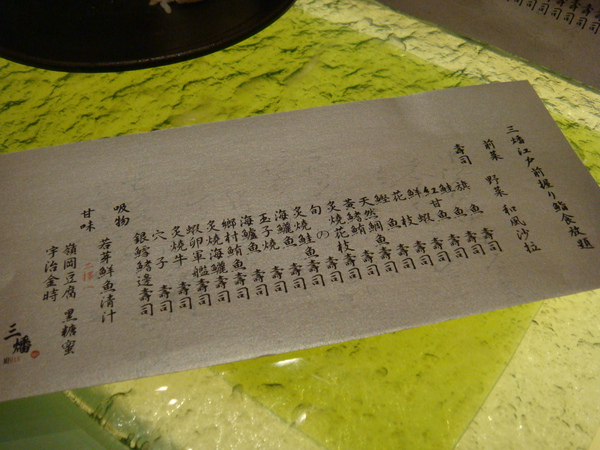 三燔江戶前握り鮨食放題
前菜 野菜和風沙拉
壽司
旗魚壽司
鮭魚壽司
紅甘蝦壽司
鮮魚壽司
花枝壽司
鰹魚壽司
天然鯛魚壽司
黃鰭鮪壽司
炙燒花枝壽司
旬の魚壽司
炙燒鮭魚壽司
海鱺魚壽司
玉子燒壽司
海鱸魚壽司
鄉村鮪魚壽司
炙燒海鱺壽司
蝦卵軍艦壽司
炙燒牛壽司
穴子壽司
銀鱈鰭邊壽司
吸物
若芽鮮魚清汁
甘味
嶺岡豆腐 黑糖蜜
宇治金時
三燔